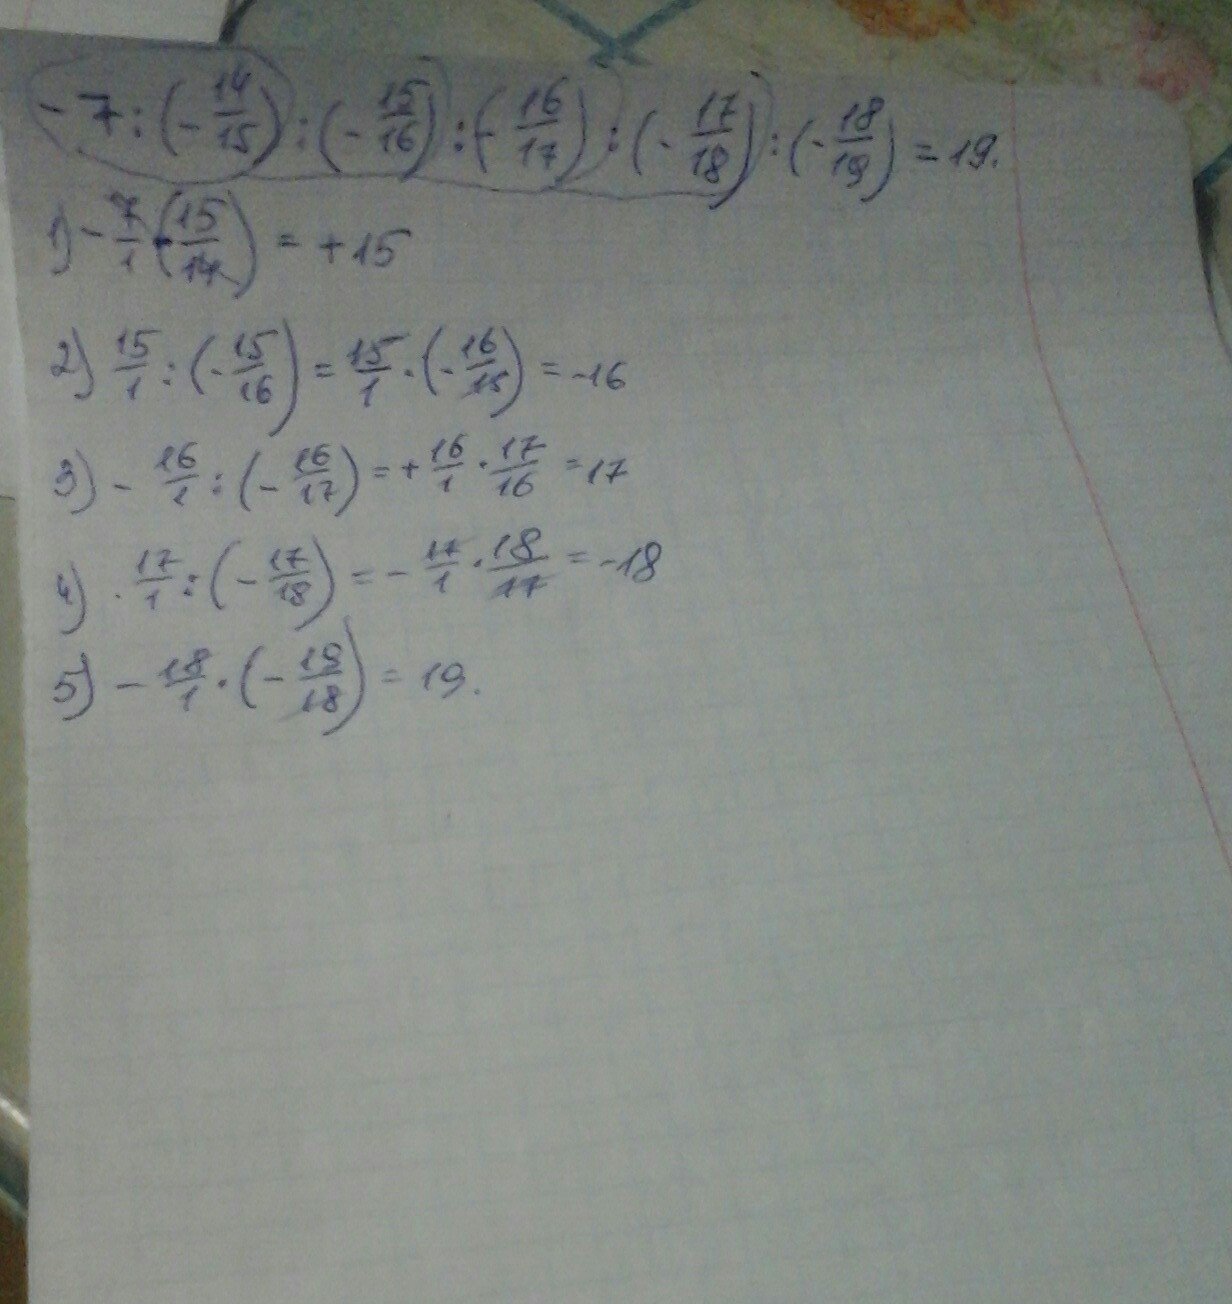 -7 : (-14/15) : (-15/16) : (-16/17) : (-17/18) : (-18/19) = 19.
1) -7/1 · (15/14) = +15
2) 15/1 : (-15/16) = 15/1 · (-16/15) = -16
3) - 16/1 : (-16/17) = + 16/1 · 17/16 = 17
4) · 17/1 : (-17/18) = - 17/1 · 18/17 = -18
5) - 18/1 · (-19/18) = 19.